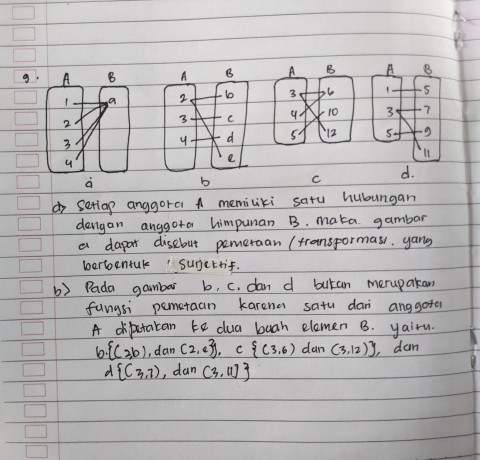 9. A B A B A B A B
1 a 2 b 3 6 1 5
2 3 c 4 10 3 7
3 4 d 5 12 5 9
4 e 11
a b c d.
a) Setiap anggota A memiliki satu hubungan
dengan anggota himpunan B. maka gambar
a dapat disebut pemetaan (transformasi. yang
berbentuk : surjektif.
b) Pada gambar b, c, dan d bukan merupakan
fungsi pemetaan karena satu dari anggota
A dipetakan ke dua buah elemen B. yaitu.
b.{(2,b), dan (2,e)}, c {(3,6) dan (3,12)}, dan
d{(3,7), dan (3,11)}